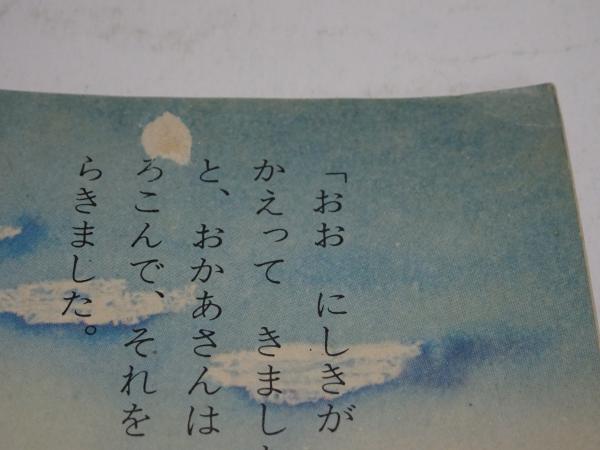 「おお　にしきが
かえって　きまし
と、おかあさんは
ろこんで、それを
らきました。